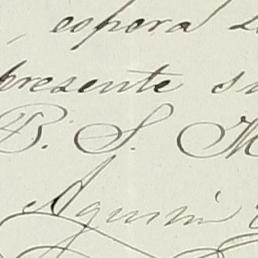 espera
presente su
B. S. M
Agustin